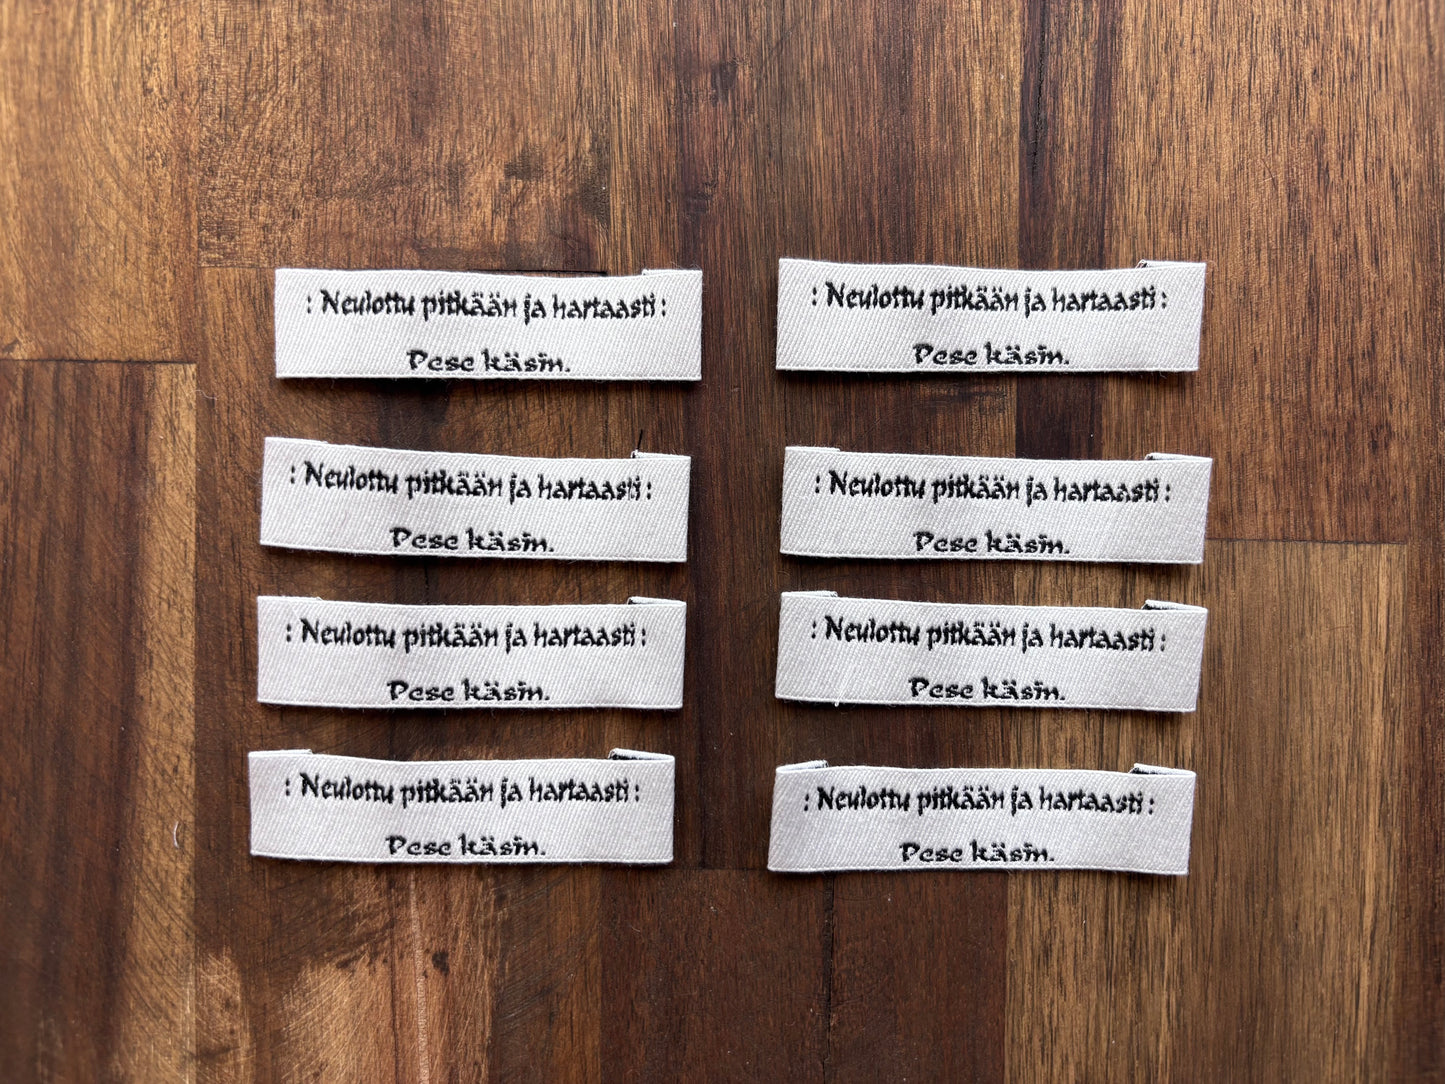 : Neulottu pitkään ja hartaasti :
Pese käsin.
: Neulottu pitkään ja hartaasti :
Pese käsin.
: Neulottu pitkään ja hartaasti :
Pese käsin.
: Neulottu pitkään ja hartaasti :
Pese käsin.
: Neulottu pitkään ja hartaasti :
Pese käsin.
: Neulottu pitkään ja hartaasti :
Pese käsin.
: Neulottu pitkään ja hartaasti :
Pese käsin.
: Neulottu pitkään ja hartaasti :
Pese käsin.